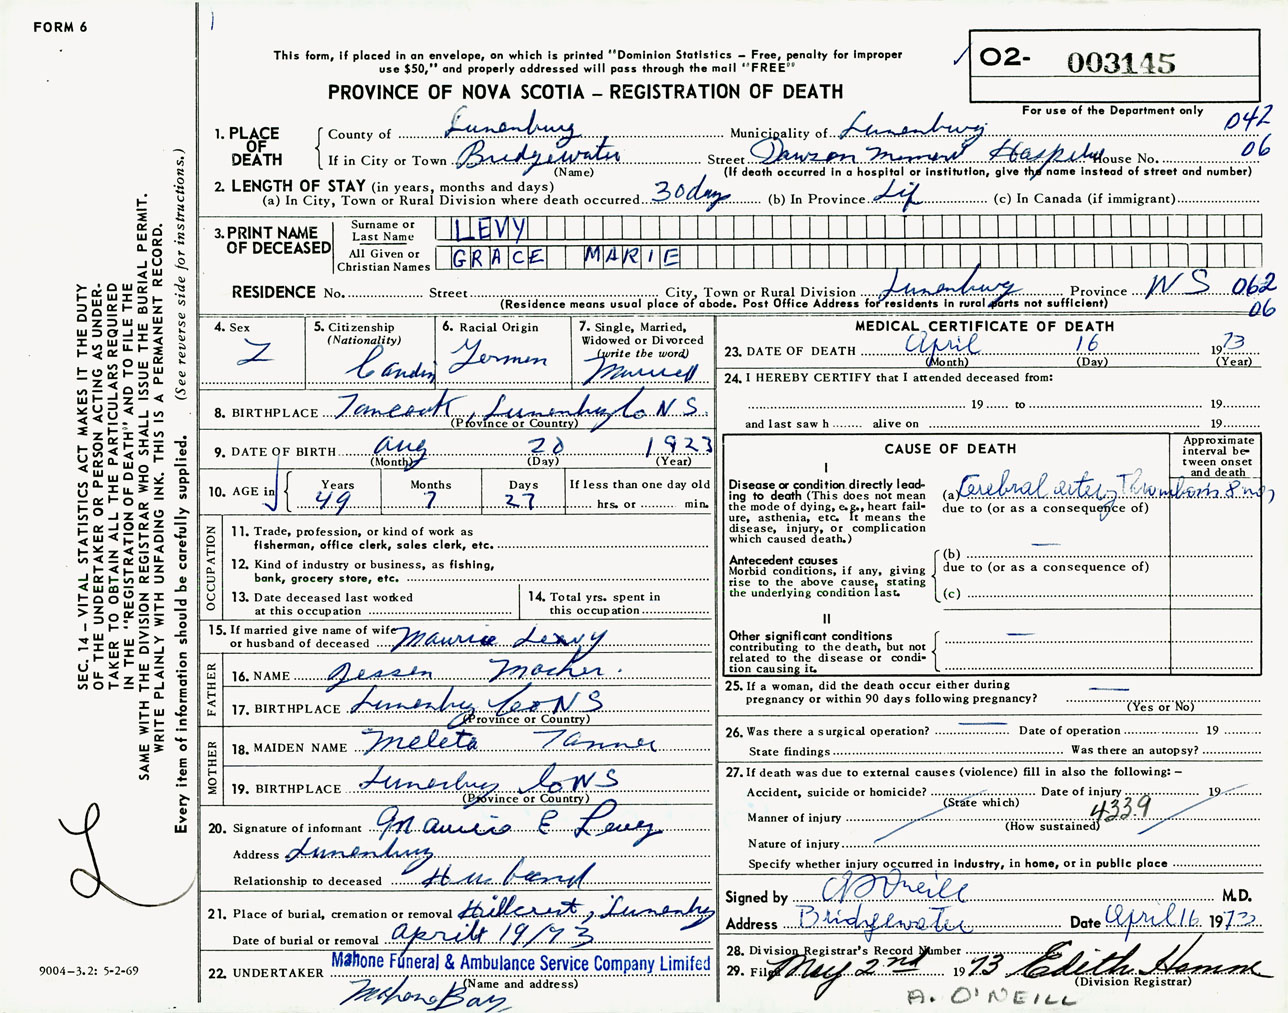 FORM 6
SEC. 14 – VITAL STATISTICS ACT MAKES IT THE DUTY
OF THE UNDERTAKER OR PERSON ACTING AS UNDER-
TAKER TO OBTAIN ALL THE PARTICULARS REQUIRED
IN THE "REGISTRATION OF DEATH" AND TO FILE THE
SAME WITH THE DIVISION REGISTRAR WHO SHALL ISSUE THE BURIAL PERMIT.
WRITE PLAINLY WITH UNFADING INK. THIS IS A PERMANENT RECORD.
Every item of information should be carefully supplied. (See reverse side for instructions.)
L
9004–3.2: 5-2-69
This form, if placed in an envelope, on which is printed "Dominion Statistics – Free, penalty for improper
use $50," and properly addressed will pass through the mail "FREE"
PROVINCE OF NOVA SCOTIA – REGISTRATION OF DEATH
02- 003145
For use of the Department only
042
06
1. PLACE OF DEATH
County of Lunenburg Municipality of Lunenburg
If in City or Town Bridgewater Street Dawson Memorial Hospital House No.
(Name) (If death occurred in a hospital or institution, give the name instead of street and number)
2. LENGTH OF STAY (in years, months and days)
(a) In City, Town or Rural Division where death occurred 30 days (b) In Province Life (c) In Canada (if immigrant)
3. PRINT NAME OF DECEASED
Surname or Last Name LEVY
All Given or Christian Names GRACE MARIE
RESIDENCE No. Street City, Town or Rural Division Lunenburg Province NS 062
06
(Residence means usual place of abode. Post Office Address for residents in rural parts not sufficient)
4. Sex
5. Citizenship (Nationality)
6. Racial Origin German
7. Single, Married, Widowed or Divorced (write the word) Married
8. BIRTHPLACE Tancook, Lunenburg Co N S.
(Province or Country)
9. DATE OF BIRTH Aug 20 1923
(Month) (Day) (Year)
10. AGE in Years 49 Months 7 Days 27 If less than one day old hrs. or min.
OCCUPATION
11. Trade, profession, or kind of work as
fisherman, office clerk, sales clerk, etc.
12. Kind of industry or business, as fishing,
bank, grocery store, etc.
13. Date deceased last worked at this occupation
14. Total yrs. spent in this occupation
15. If married give name of wife or husband of deceased Maurice Levy
FATHER
16. NAME
17. BIRTHPLACE Lunenburg Co NS
(Province or Country)
MOTHER
18. MAIDEN NAME Meleta Tanner
19. BIRTHPLACE Lunenburg Co NS
(Province or Country)
20. Signature of informant Maurice E Levy
Address Lunenburg
Relationship to deceased Husband
21. Place of burial, cremation or removal Hillcrest, Lunenburg
Date of burial or removal April 19/73
22. UNDERTAKER Mahone Funeral & Ambulance Service Company Limited
(Name and address)
Mahone Bay
MEDICAL CERTIFICATE OF DEATH
23. DATE OF DEATH April 16 1973
(Month) (Day) (Year)
24. I HEREBY CERTIFY that I attended deceased from:
19 to 19
and last saw h alive on 19
CAUSE OF DEATH
Approximate interval between onset and death
I
Disease or condition directly lead-
ing to death (This does not mean
the mode of dying, e.g., heart fail-
ure, asthenia, etc. It means the
disease, injury, or complication
which caused death.)
(a) Cerebral artery Thrombosis 8 mos
due to (or as a consequence of)
Antecedent causes
Morbid conditions, if any, giving
rise to the above cause, stating
the underlying condition last.
(b) —
due to (or as a consequence of)
(c)
II
Other significant conditions
contributing to the death, but not
related to the disease or condi-
tion causing it.
—
25. If a woman, did the death occur either during
pregnancy or within 90 days following pregnancy? —
(Yes or No)
26. Was there a surgical operation? — Date of operation 19
State findings Was there an autopsy?
27. If death was due to external causes (violence) fill in also the following: –
Accident, suicide or homicide? Date of injury 19
(State which) 4339
Manner of injury
(How sustained)
Nature of injury
Specify whether injury occurred in industry, in home, or in public place
Signed by O'Neill M.D.
Address Bridgewater Date April 16 1973
28. Division Registrar's Record Number
29. Filed May 2nd 1973 Edith
(Division Registrar)
A. O'NEILL